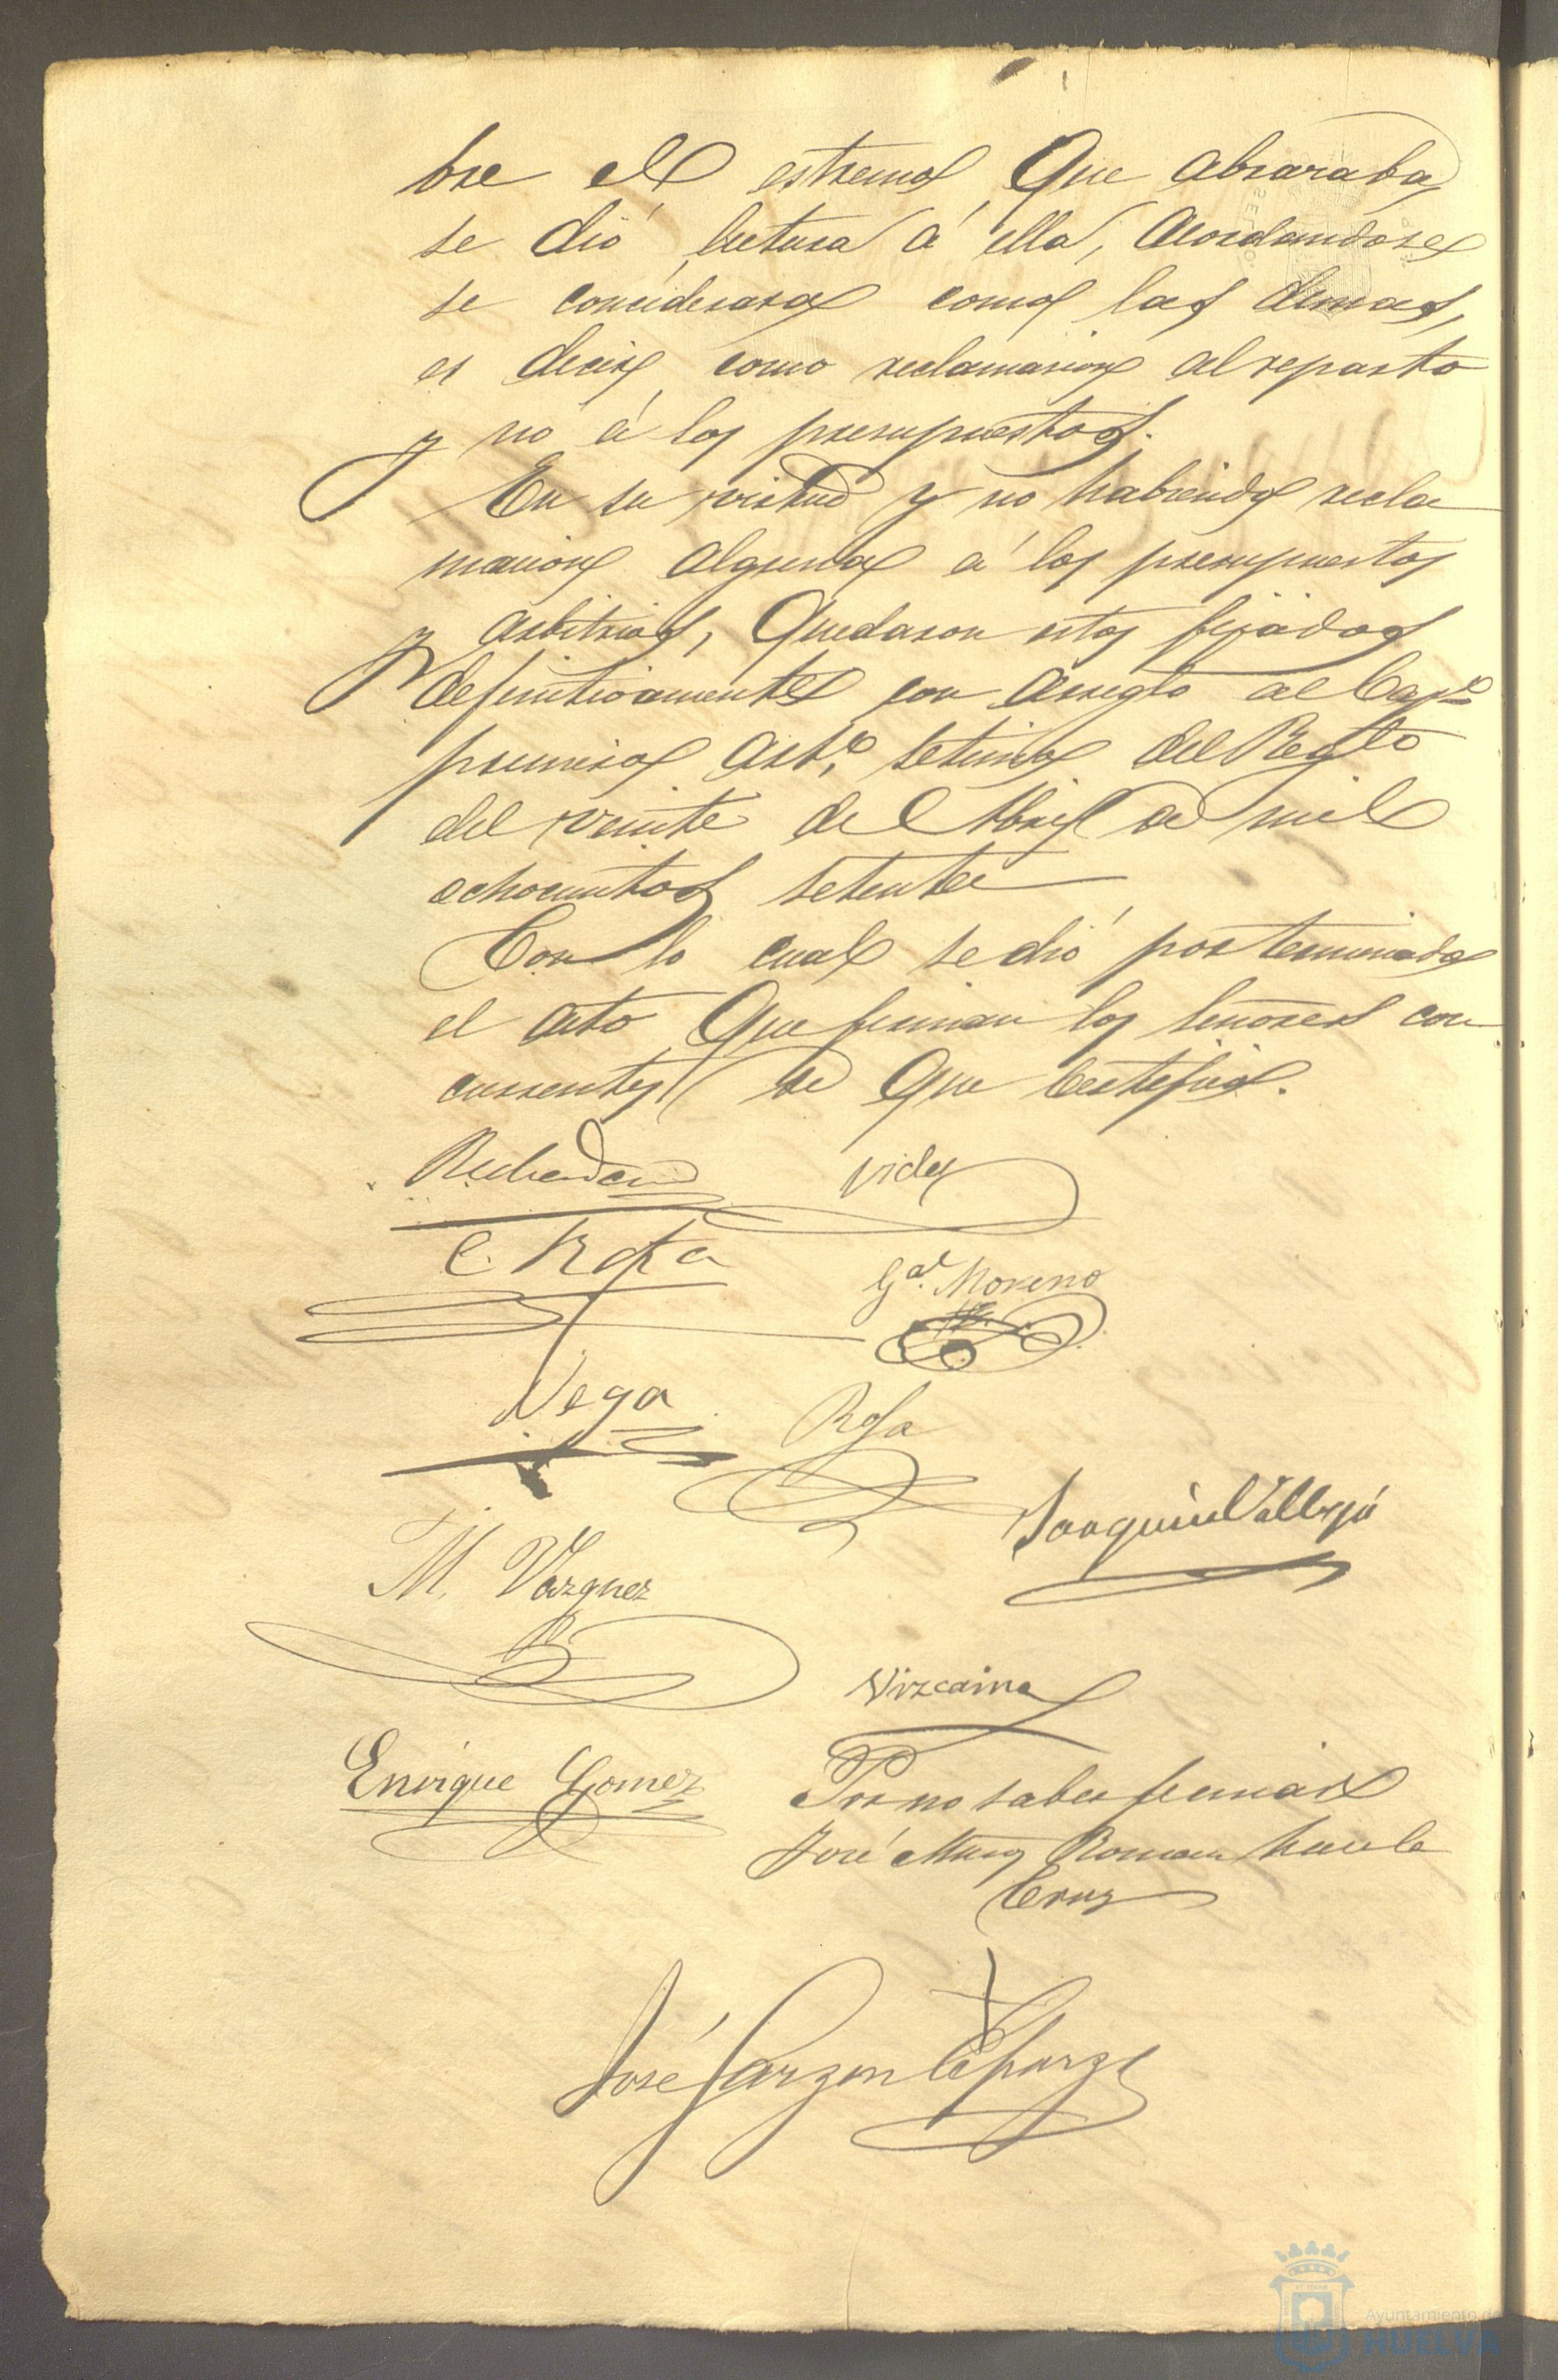 bre el estremo que abrazaba,
se dió lectura á ella, acordandose
se considerara como las demas,
es decir como reclamacion al reparto
y no á los presupuestos.
En su virtud y no habiendo recla
macion alguna á los presupuestos
y arbitrios, quedaron estos fijados
definitivamente con arreglo al Cap.o
primero art.o setimo del Regto
del veinte de Abril de mil
ochocientos setenta
Con lo cual se dió por terminado
el acto que firman los señores con
currentes de que certifico.
Vides
C. Rofa
G.al Moreno
Vega
Rofa
Joaquin Vallejo
M. Vazquez
Vizcaino
Enrique Gomez
Por no saber firmar
José Muñoz Roman hace la
Cruz
José Garzon
Ayuntamiento de
HUELVA